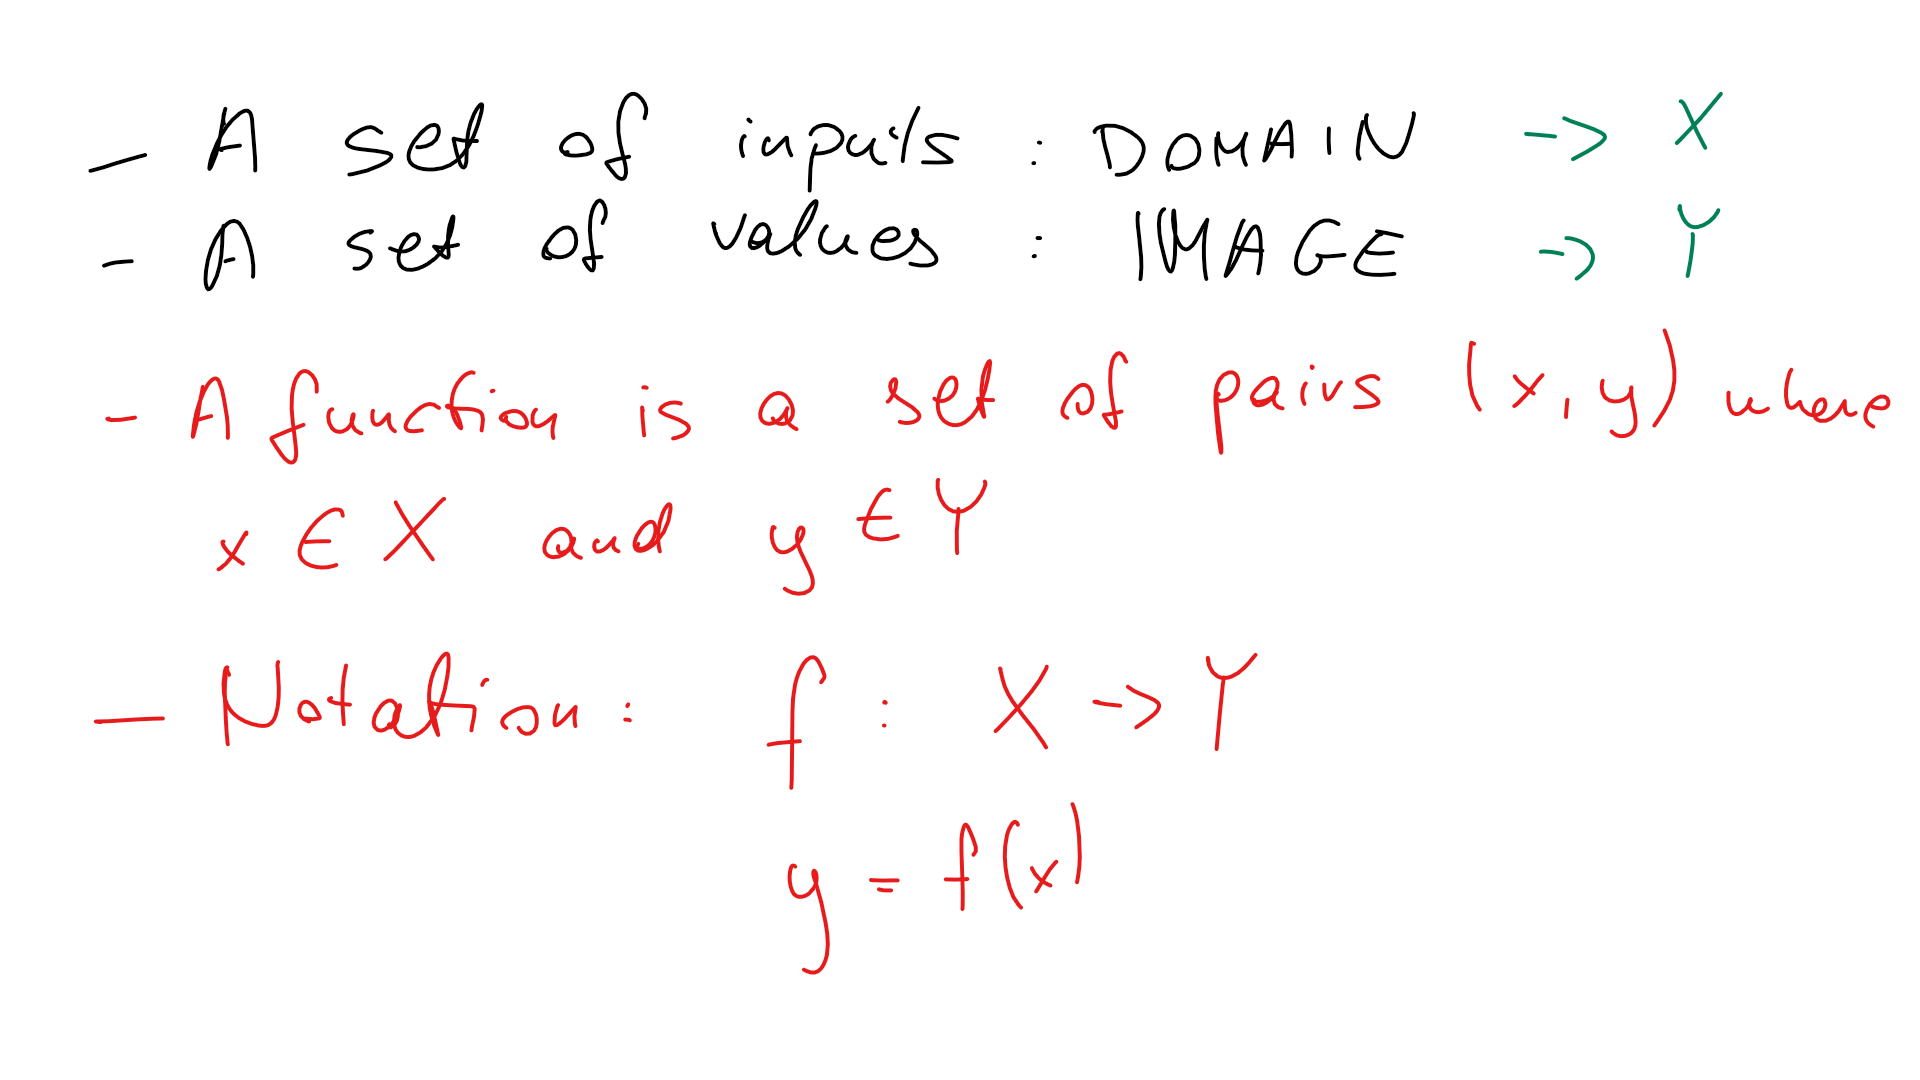 - A set of inputs : DOMAIN -> X
- A set of values : IMAGE -> Y
- A function is a set of pairs (x, y) where
x ∈ X and y ∈ Y
- Notation : f : X -> Y
y = f(x)